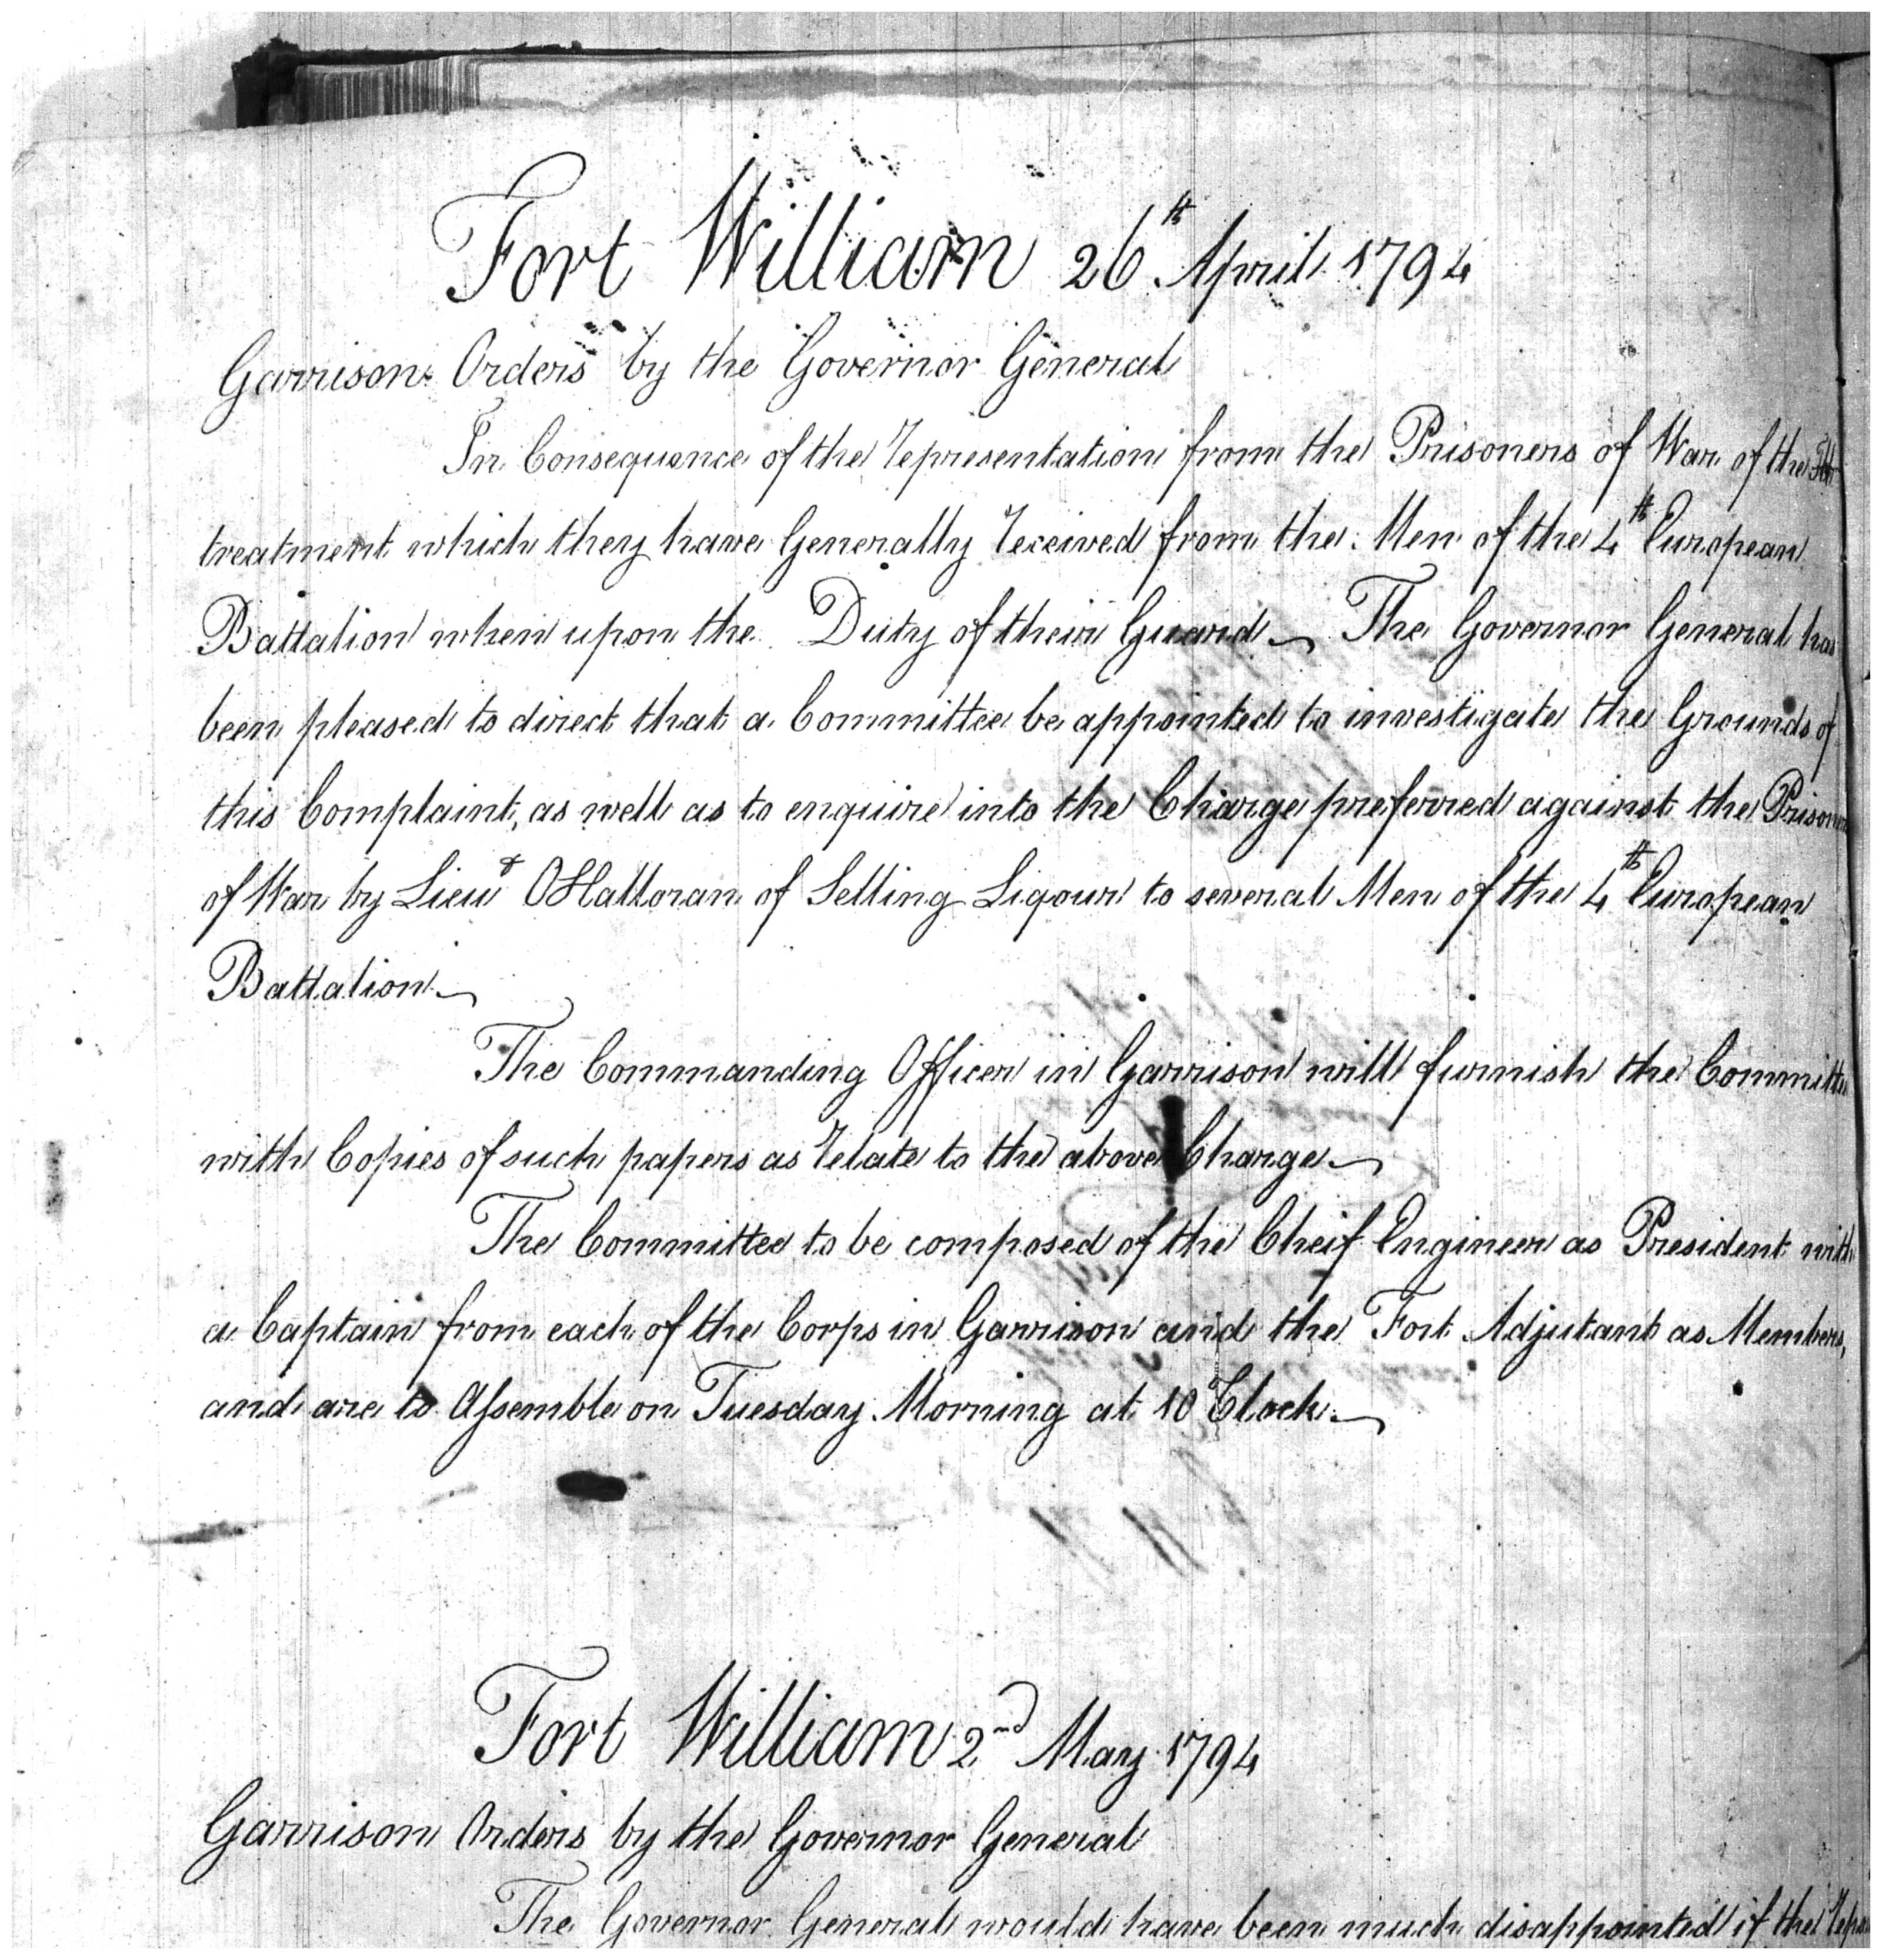 Fort William 26th April 1794
Garrison Orders by the Governor General
In Consequence of the representation from the Prisoners of War of the Ill
treatment which they have Generally received from the Men of the 4th European
Battalion when upon the Duty of their Guard The Governor General has
been pleased to direct that a Committee be appointed to investigate the Grounds of
this Complaint, as well as to enquire into the Charge preferred against the Prisoners
of War by Lieut OHalloran of Selling Liqour to several Men of the 4th European
Battalion
The Commanding Officer in Garrison will furnish the Committee
with Copies of such papers as relate to the above Charge
The Committee to be composed of the Cheif Engineer as President with
a Captain from each of the Corps in Garrison and the Fort Adjutant as Members,
and are to Assemble on Tuesday Morning at 10 Clock
Fort William 2nd May 1794
Garrison Orders by the Governor General
The Governor General would have been much disappointed if the